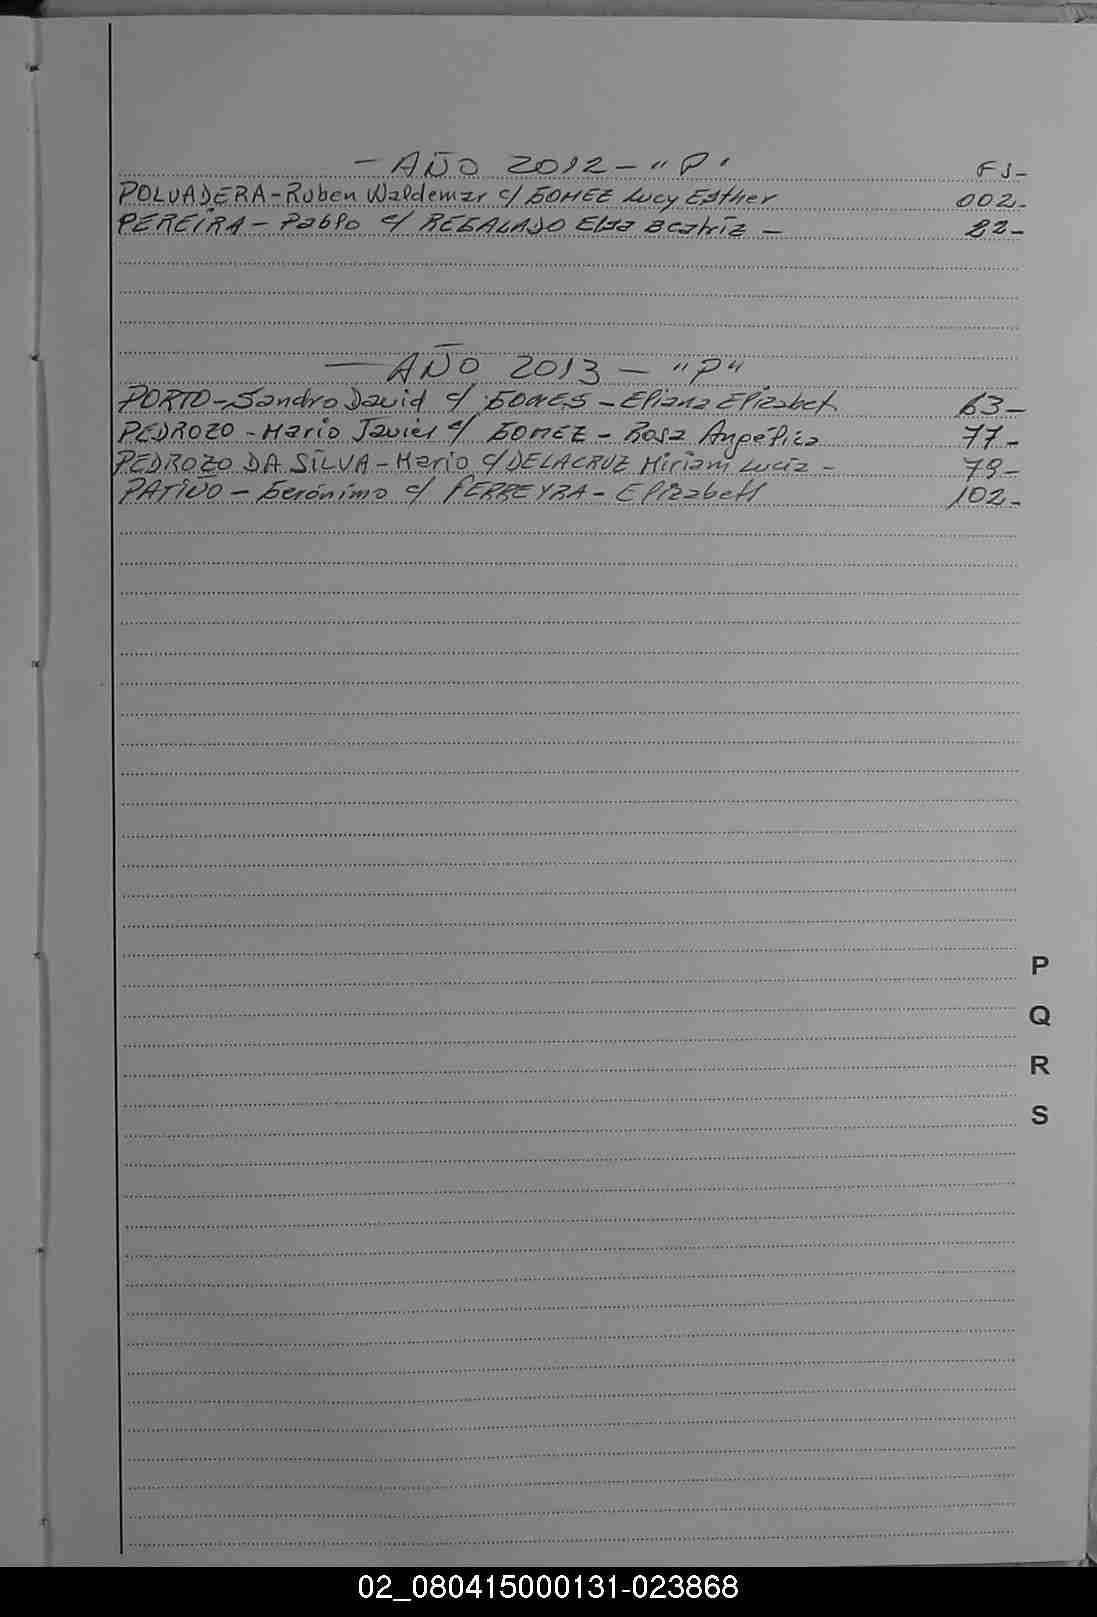 — AÑO 2012 — "P" FJ-
POLVADERA - Ruben Waldemar c/ GOMEZ Lucy Esther 002-
PEREIRA - Pablo c/ REGALADO Elsa Beatriz - 22-
— AÑO 2013 — "P"
PORTO - Sandro David c/ GOMES - Eliana Elizabet 63-
PEDROZO - Mario Javier c/ GOMEZ - Rosa Angélica 77-
PEDROZO DA SILVA - Mario c/ DELACRUZ Miriam Lucia - 79-
PATIÑO - Gerónimo c/ FERREYRA - Elizabeth 102-
P
Q
R
S
02_080415000131-023868